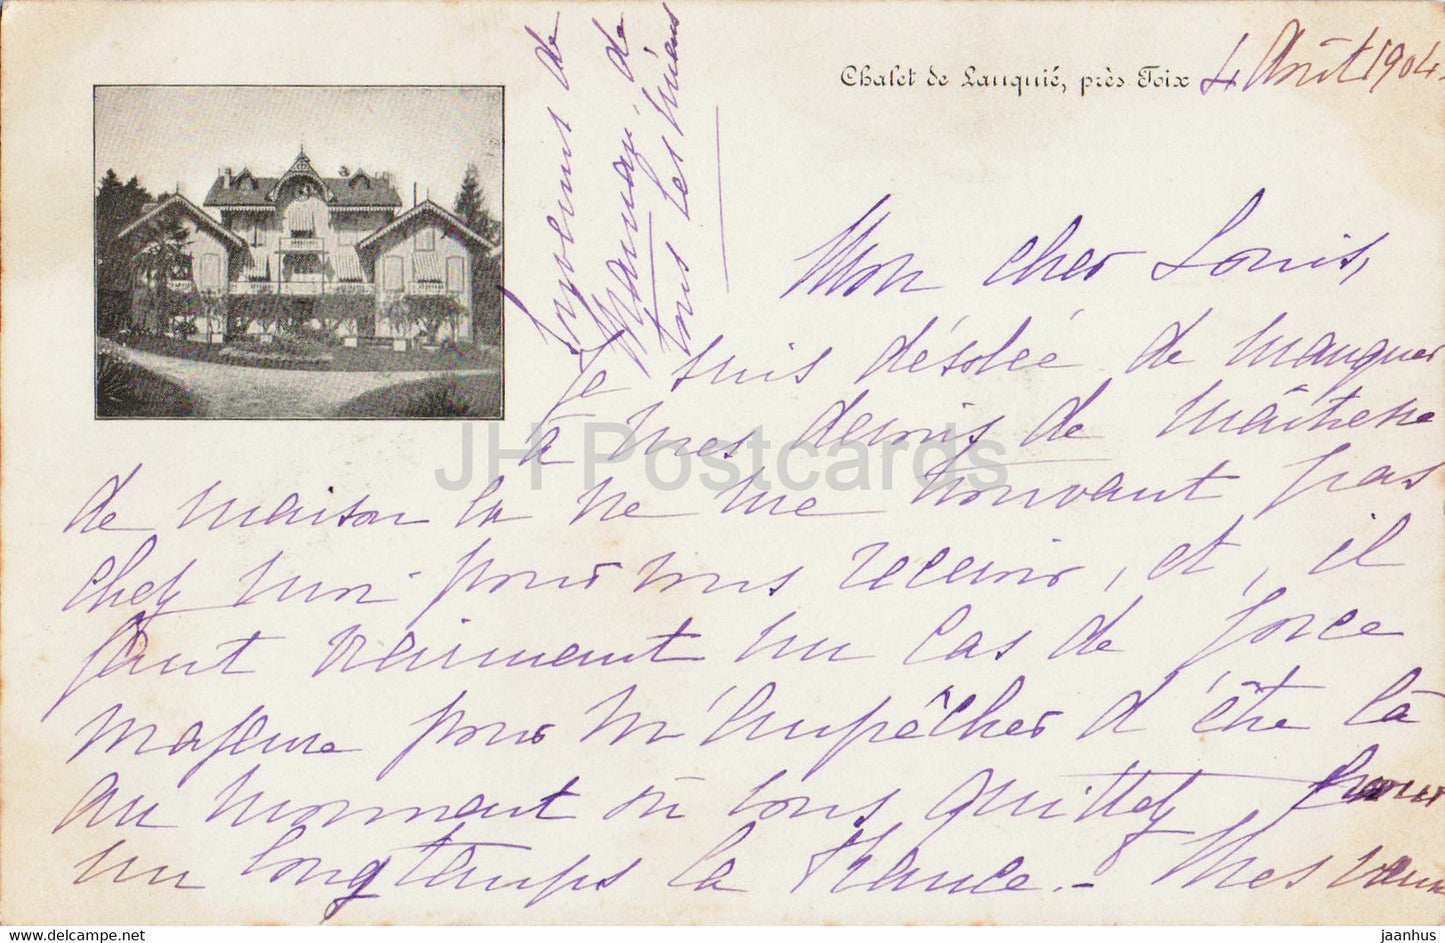 Chalet de Lauquié, près Foix 4 Août 1904.
Mon cher Louis,
Je suis désolée de manquer
à mes devoirs de maîtresse
de maison en ne me trouvant pas
chez moi pour vous recevoir, et, il
faut vraiment un cas de force
majeure pour m'empêcher d'être là
au moment où vous quittez pour
un longtemps la France. - Mes vœux
Souvenirs de
Maman, de
tous les miens
JH Postcards
www.delcampe.net
jaanhus